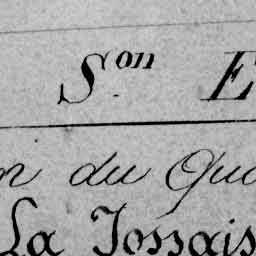 Son E
du
La Jossais